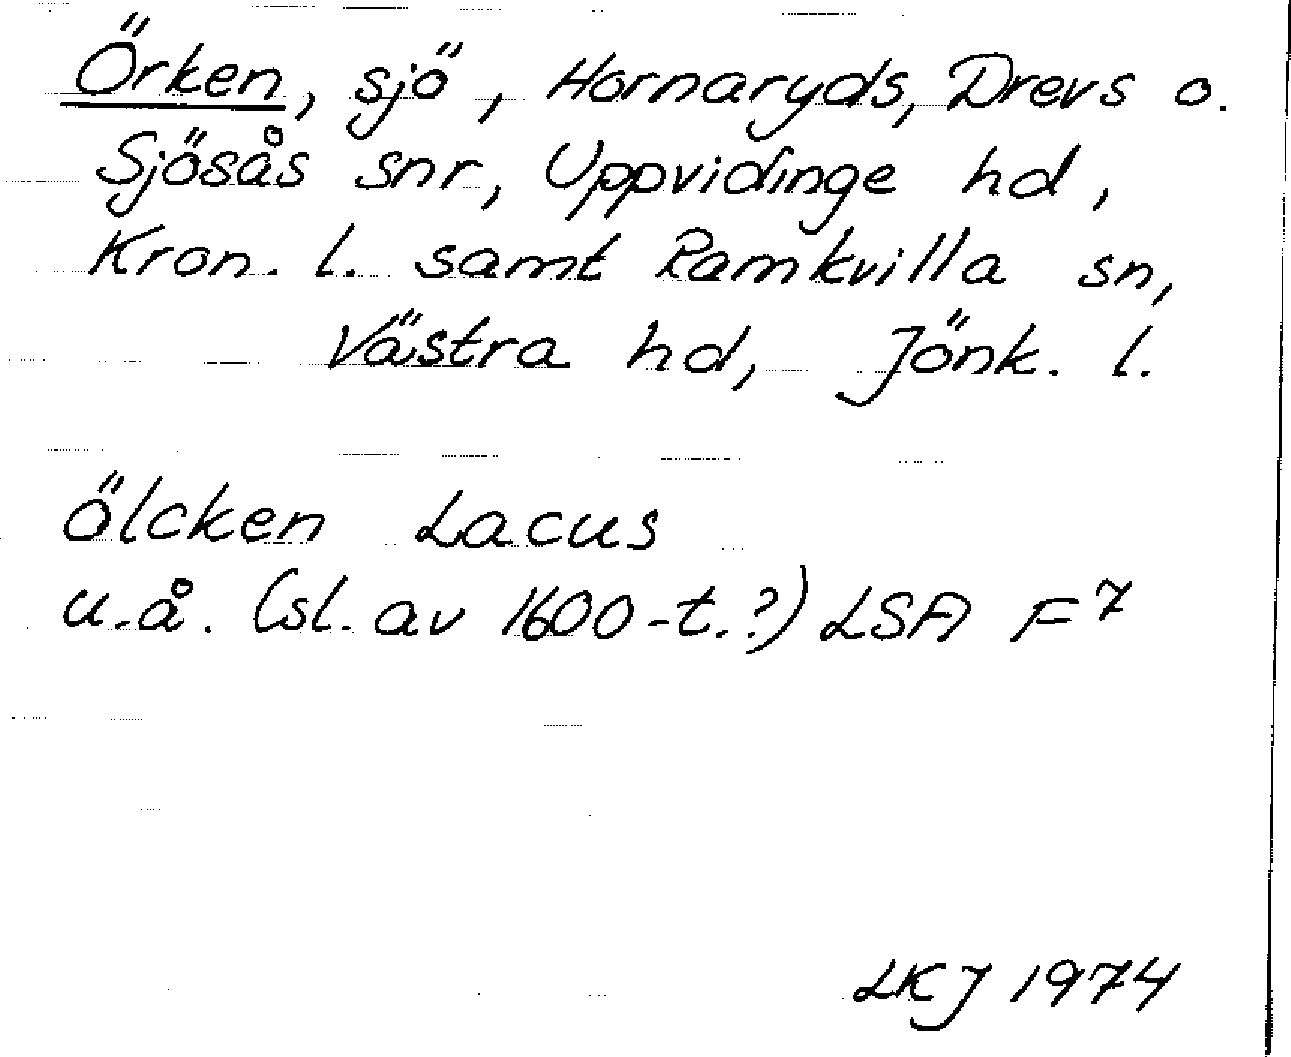 Örken, sjö, Hornaryds, Drevs o.
Sjösås snr, Uppvidinge hd,
Kron. l. samt Ramkvilla sn,
Västra hd, Jönk. l.
ölcken Lacus
u.å. (sl. av 1600-t.?) LSA F7
LKJ 1974